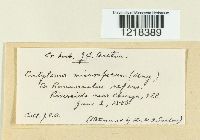 1218389
Ex herb. J.C. Arthur.
Entyloma microsporum (Ung.)
On Ranunculus repens.
Riverside near Chicago, Ill.
June 2, 1883
Coll. J.C.A.
(Determined by